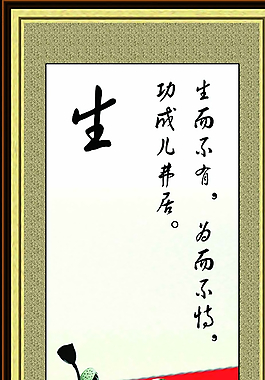 生而不有，为而不恃，
功成儿弗居。
生